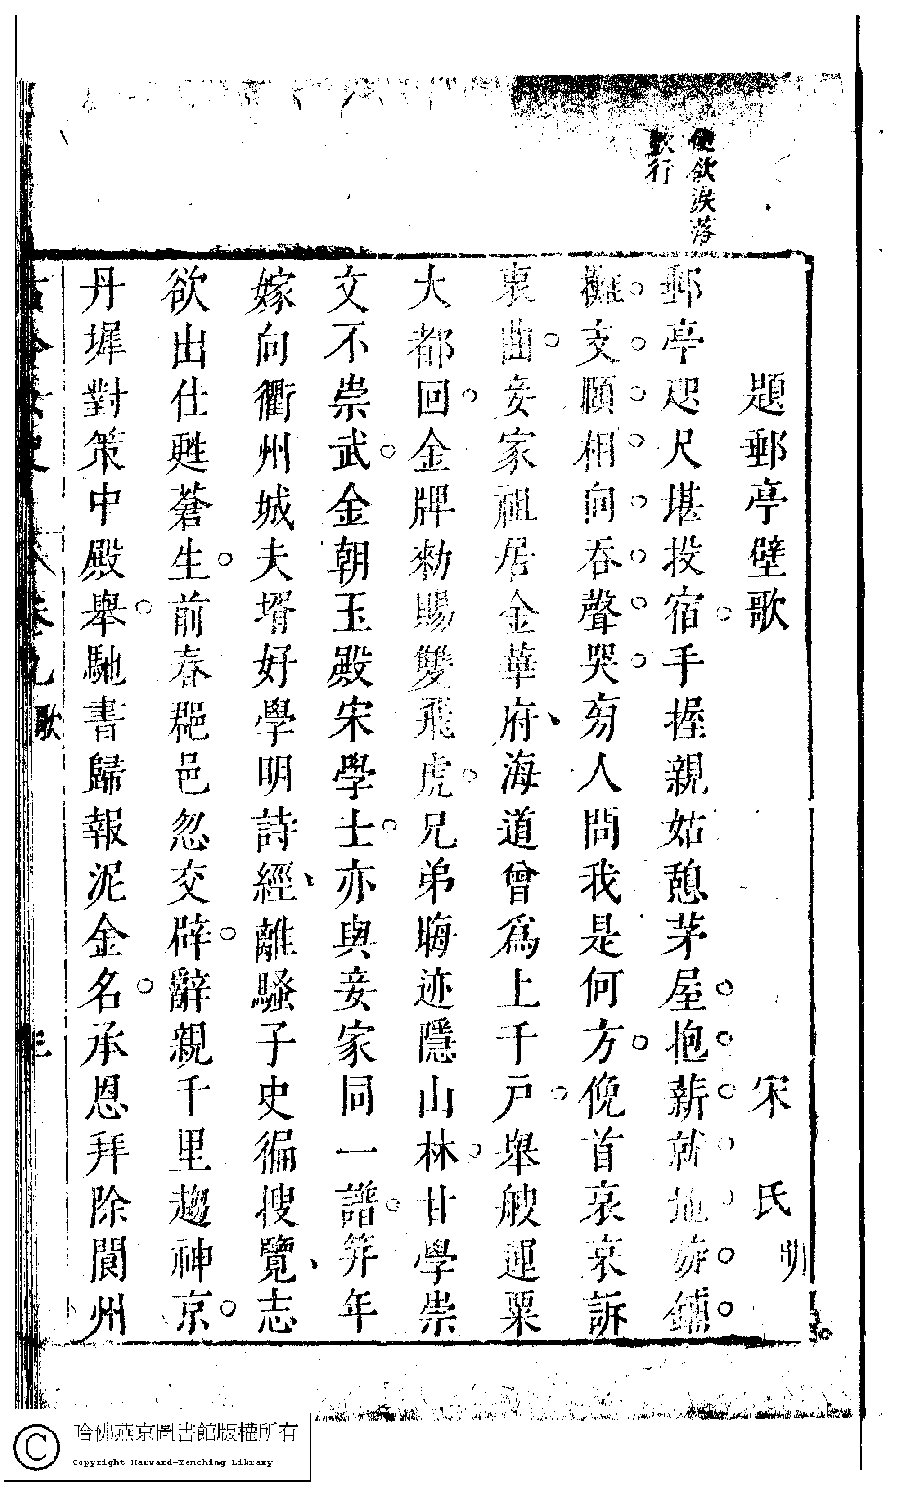 便欲淚落
數行
題郵亭壁歌 宋氏 明
郵亭咫尺堪投宿手握親姑憩茅屋抱薪就地旋鋪
攤支頤相向吞聲哭旁人問我是何方俛首哀哀訴
衷曲妾家祖居金華府海道曾爲上千戸舉艘運粟
大都回金牌勑賜雙飛虎兄弟晦迹隱山林甘學崇
文不崇武金朝玉殿宋學士亦與妾家同一譜笄年
嫁向衢州城夫壻好學明詩經離騷子史徧搜覽志
欲出仕甦蒼生前春郡邑忽交辟辭親千里趨神京
丹墀對策中殿舉馳書歸報泥金名承恩拜除閬州
卷九 歌 三
哈佛燕京圖書館版權所有
Copyright Harvard-Yenching Library